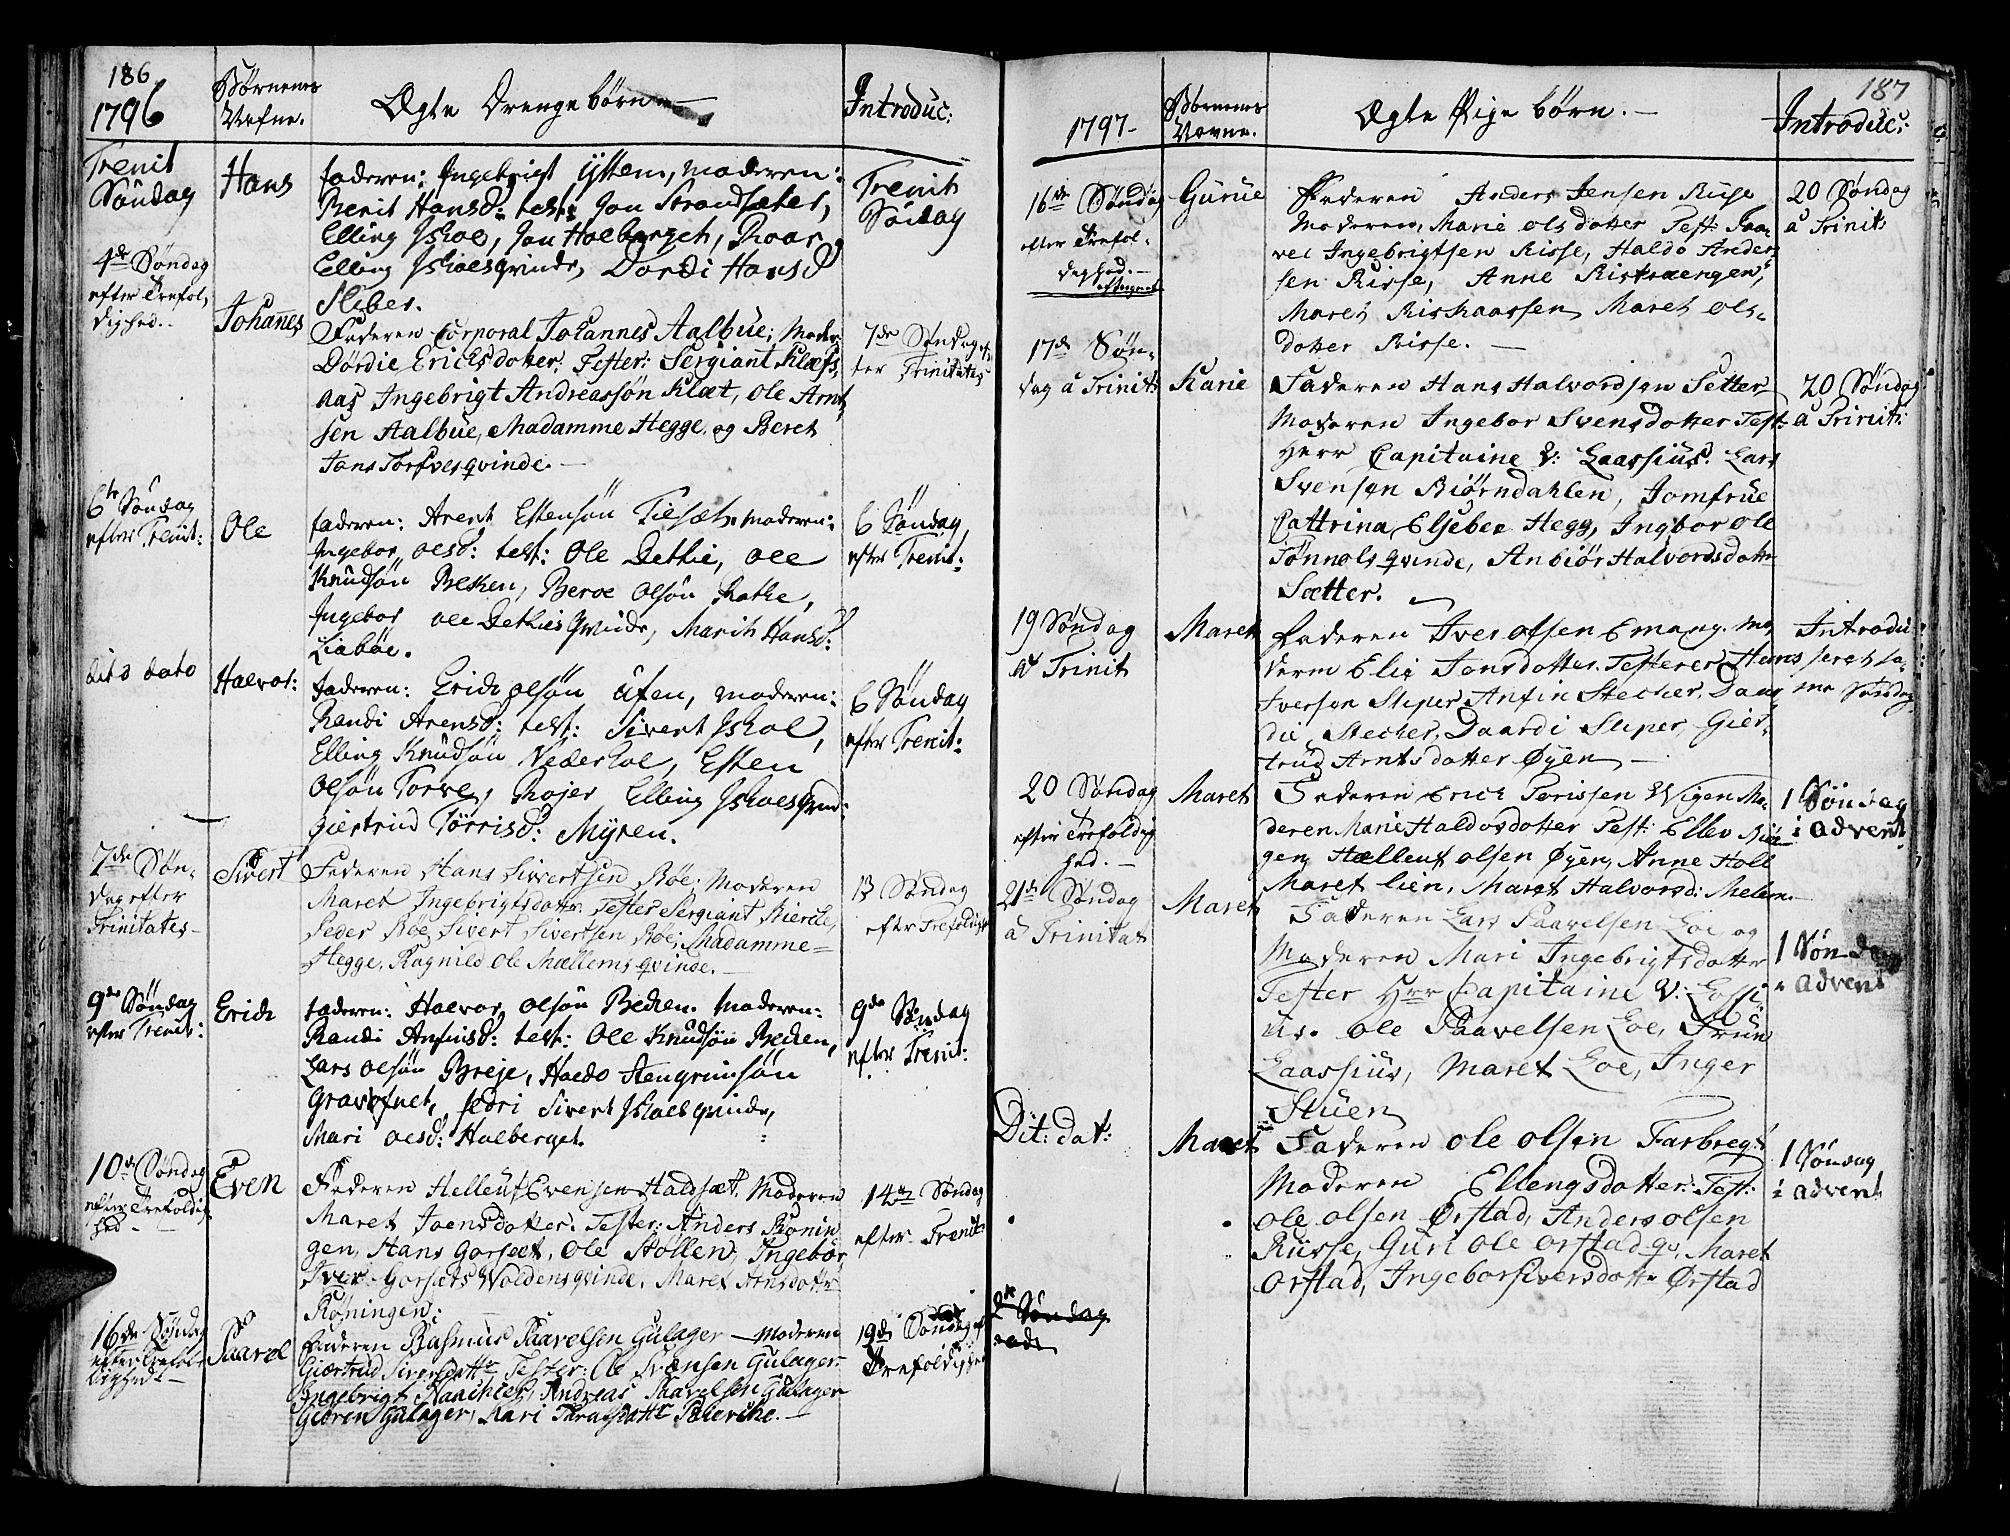 186
1796
Børnenes
Nafne.
Ægte Drengebørn
Introduc:
Trenit
Søndag
Hans
faderen: Ingebrigt Ystten, moderen:
Berit Hansd: test: Jon Strandsæter,
Elling Ishoel, Jon Hoelberget, Roar
Elling Ishoelsqvinde, Dordi Hansd
Sliber.
Trenit
Søndag
4de Søndag
efter Trefol,
dighed.
Johanes
Faderen Corporal Johannes Aalbue; Moder
Dørdie Ericksdotter. Tester: Sergiant Klæf,
aas Ingebrigt Andreassøn Klæt, Ole Arnt
sen Aalbue, Madamme Hegge, og Beret
Jons Torfvesqvinde.
7de Søndag ef
ter Trinitates
6te Søndag
efter Trenit:
Ole
faderen: Arent Estensøn moderen:
Ingebor olsd: test: Ole Dethie, ole
Knudsøn Becken, Beroe olsøn Rathe,
Ingebor ole Dethies qvinde, Marith Hansd:
Liabøe.
6 Søndag
efter Trenit:
dito dato
Halvor:
faderen: Erich olsøn Ufen, moderen:
Randi Arensd: test: Sivert Ishoel,
Elling Knudsøn Nederhoel, Esten
olsøn Torve, Rojer Elling Ishoelsqvind:
giertrud Tørrisd: Myren.
6 Søndag
efter Trenit:
7de Søn-
dag efter
Trinitates
Sivert
Federen Hans Sivertsen Røe; Moderen
Maret Ingebrigtsdotter. Tester Sergiant Bierche,
Peder Røe, Sivert Sivertsen Røe; Madamme=
Hegge, Ragnild Ole Mællemsqvinde.
13 Søndag
efter Trefoldigh
9de Søndag
efter Trenit:
Erich
faderen: Halvor olsøn Becken. Moderen:
Randi Anfinsd: test: Ole Knudsøn Becken,
Lars olsøn Breje, Haldo Stengrimsøn
Sivert Ishoels qvinde,
Mari olsd: Holberget.
9de Søndag
efter Trenit:
10de Søndag
efter Trefoldig
hed
Even
Federen Helleuf Evensen Haldsæt. Moderen
Maret Joensdotter. Tester: Anders Rønin
gen, Hans Gorsæt, Ole Støllen, Ingebor
Iver Gorsæts Woldensqvinde, Maret Arnsdotter
Røningen:
14de Søndag
efter Trenit:
16de Søndag
efter Trefol
dighed
Paavel
Faderen Rasmus Paavelsen Gulager Moderen
Giertrud Siversdattr Tester: Ole Svensen Gulager
Ingebrigt Andreas Paavelsen Gulager
Gulager, Kari
19de Søndag ef
Trefoldighed
187
1797
Børnenes
Navne.
Ægte Pige børn.
Introduc:
16de Søndag
efter Trefol-
dighed.
Gurue
Faderen Anders Jensen Rise
Moderen, Marie olsdotter Test: Paa-
vel Ingebrigtsen Risse, Haldo Ander
sen Risse, Anne Riskraengen,
Maret Riskaassen, Maret Ols-
dotter Risse.
20 Søndag
a Trinit:
17de Søn-
dag a Trinit:
Karie
Faderen Hans Halvordsen Setter
Moderen Ingebor Svensdotter Test:
Herr Capitaine V: Laassius. Lars
Svensen Biørndahlen, Jomfrue
Cattrina Elsebee Hegg, Ingbor ole
Tønnolsqvinde, Anbiør Halvordsdotter
Sætter.
20 Søndag
a Trinit:
19 Søndag
a Trinit
Maret
Faderen Iver olsen Emang. Mo
deren Eli Jonsdotter. Testerer Hans
Iversen Sliper, Anfin Stecher, Daar
die Stecher, Daardi Sliper, Gier
trud Arntsdotter Øyen
Introdu
seret sa-
me Søndag
20 Søndag
efter Trefoldig
hed.
Maret
Federen Erich Torissen Wigen Mo-
deren Marie Haldorsdotter Test:
gen, Hælleuf olsen Øyen, Anne Holl
Maret lien, Maret Halvorsd: Melem
1 Søndag
i advent
21de Søndag
a Trinitat
Maret
Faderen Lars Paavelsen Loe og
Moderen Mari Ingebrigtsdotter
Tester Herr Capitaine V: Lossi-
us. Ole Paavelsen Loe, Frue
Laassius, Maret Loe, Inger
Stuen
1 Søndag
i advent
Dit: dat:
Maret
Faderen Ole Olsen Farbregt
Moderen Ellengsdotter: Test:
Ole olsen Ørstad, Anders olsen
Riisse, Guri ole orstad qv, Maret
orstad, Ingebor Iversdotter Ørstad
1 Søndag
i advent
2de Søndag